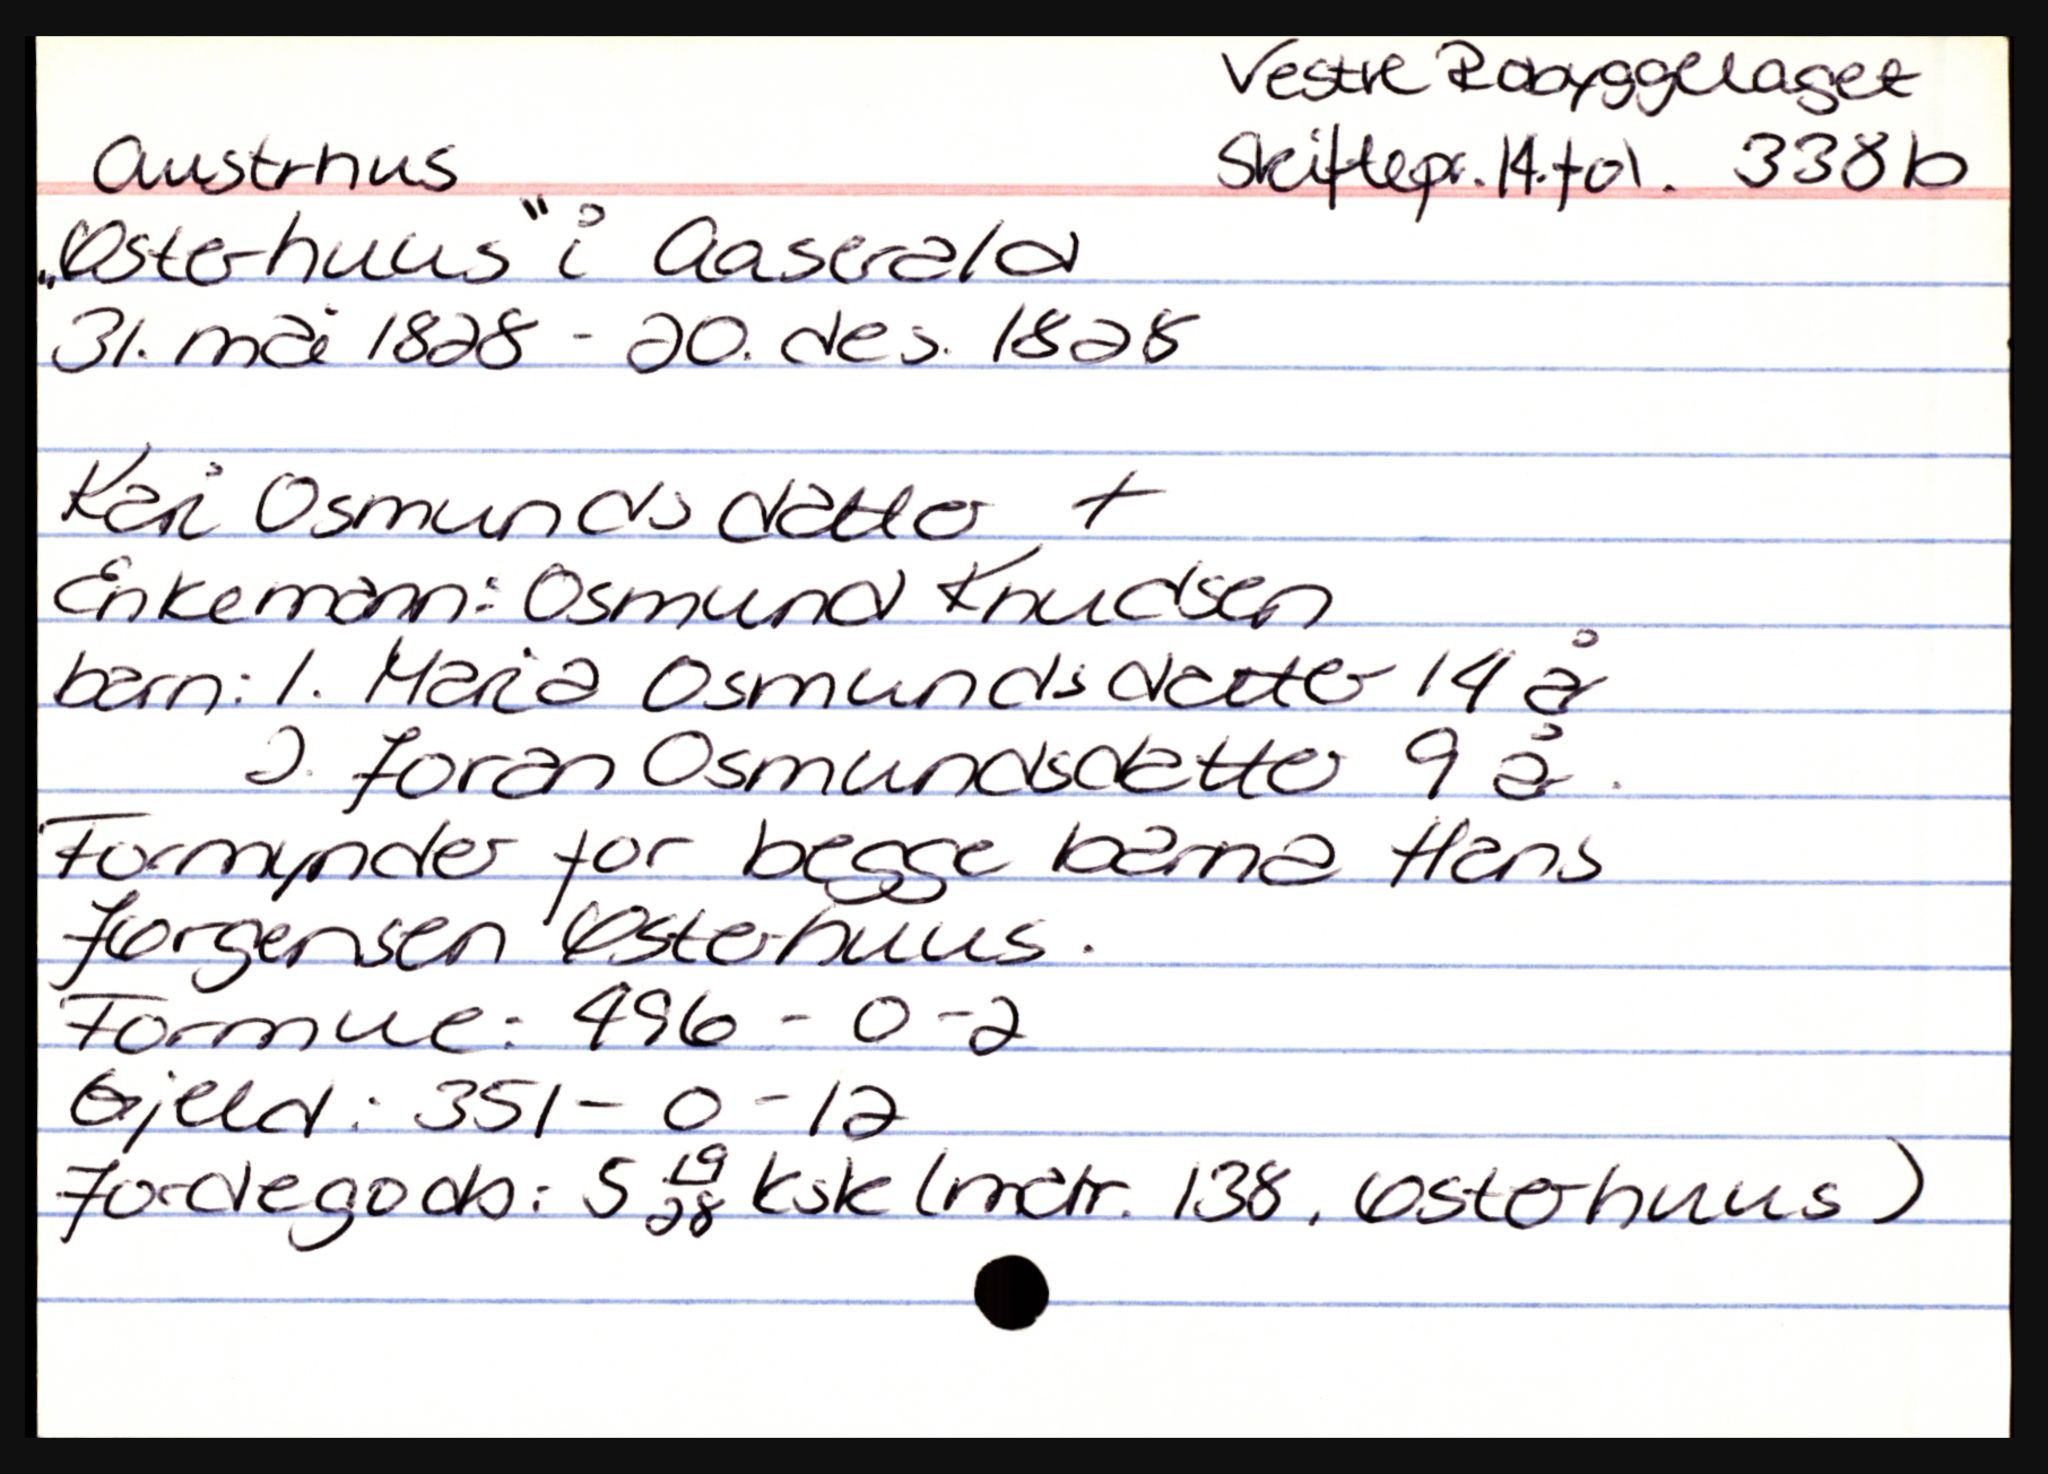 Vestre Robyggelaget
Austrhus Skiftepr. 14. fol. 338b
„Østerhuus“ i Aaserald
31. mai 1828 - 20. des. 1828
Kari Osmundsdatter +
Enkemann: Osmund Knudsen
barn: 1. Maria Osmundsdatter 14 år
2. Joran Osmundsdatter 9 år.
Formynder for begge barna Hans
Jørgensen Østerhuus.
Formue: 496 - 0 - 2
Gjeld: 351 - 0 - 12
Jordegods: 5 19/28 ksk (matr. 138, Østerhuus)